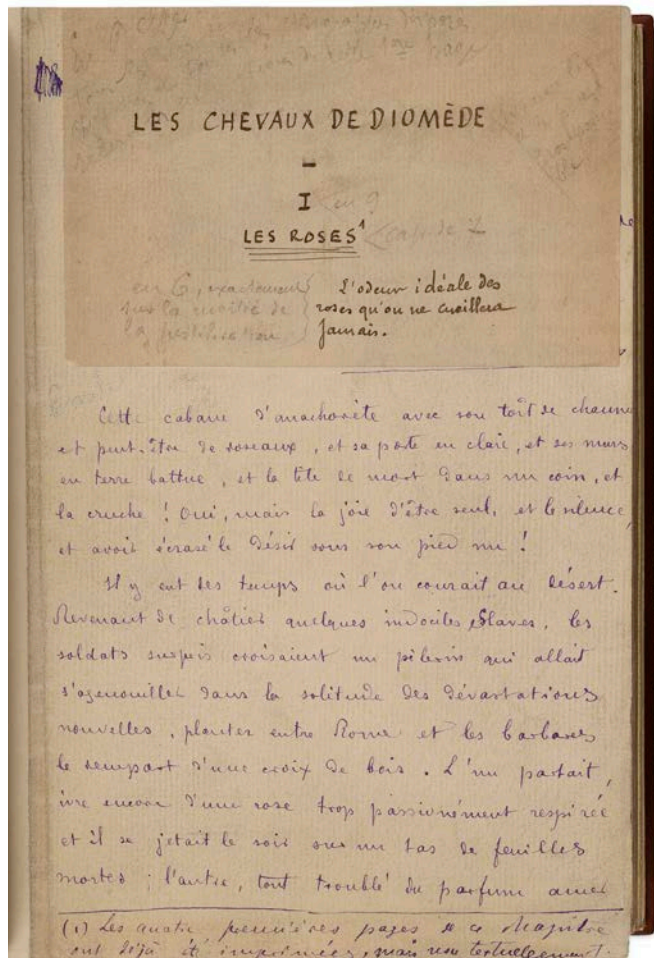 LES CHEVAUX DE DIOMÈDE
-
I
en 9
LES ROSES¹
cap. de 7
en 6, exactement
sur la moitié de
la justification
L'odeur idéale des
roses qu'on ne cueillera
jamais.
Cette cabane d'anachorète avec son toît de chaume
et peut-être de roseaux, et sa porte en claie, et ses murs
en terre battue, et la tête de mort dans un coin, et
la cruche ! Oui, mais la joie d'être seul, et le silence,
et avoir écrasé le Désir sous son pied nu !
Il y eut des temps où l'on courait au désert.
Revenant de châtier quelques indociles Slaves, les
soldats surpris croisaient un pèlerin qui allait
s'agenouiller dans la solitude des dévastations
nouvelles, planter entre Rome et les barbares
le rempart d'une croix de bois. L'un partait,
ivre encore d'une rose trop passionément respirée
et il se jetait le soir sur un tas de feuilles
mortes ; l'autre, tout troublé du parfum amer
(1) Les quatre premières pages de ce chapitre
ont déjà été imprimées, mais non textuellement.